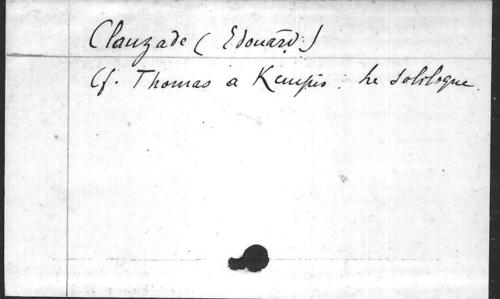 Clauzade (Edouard.)
Cf. Thomas a Kempis. Le soliloque.